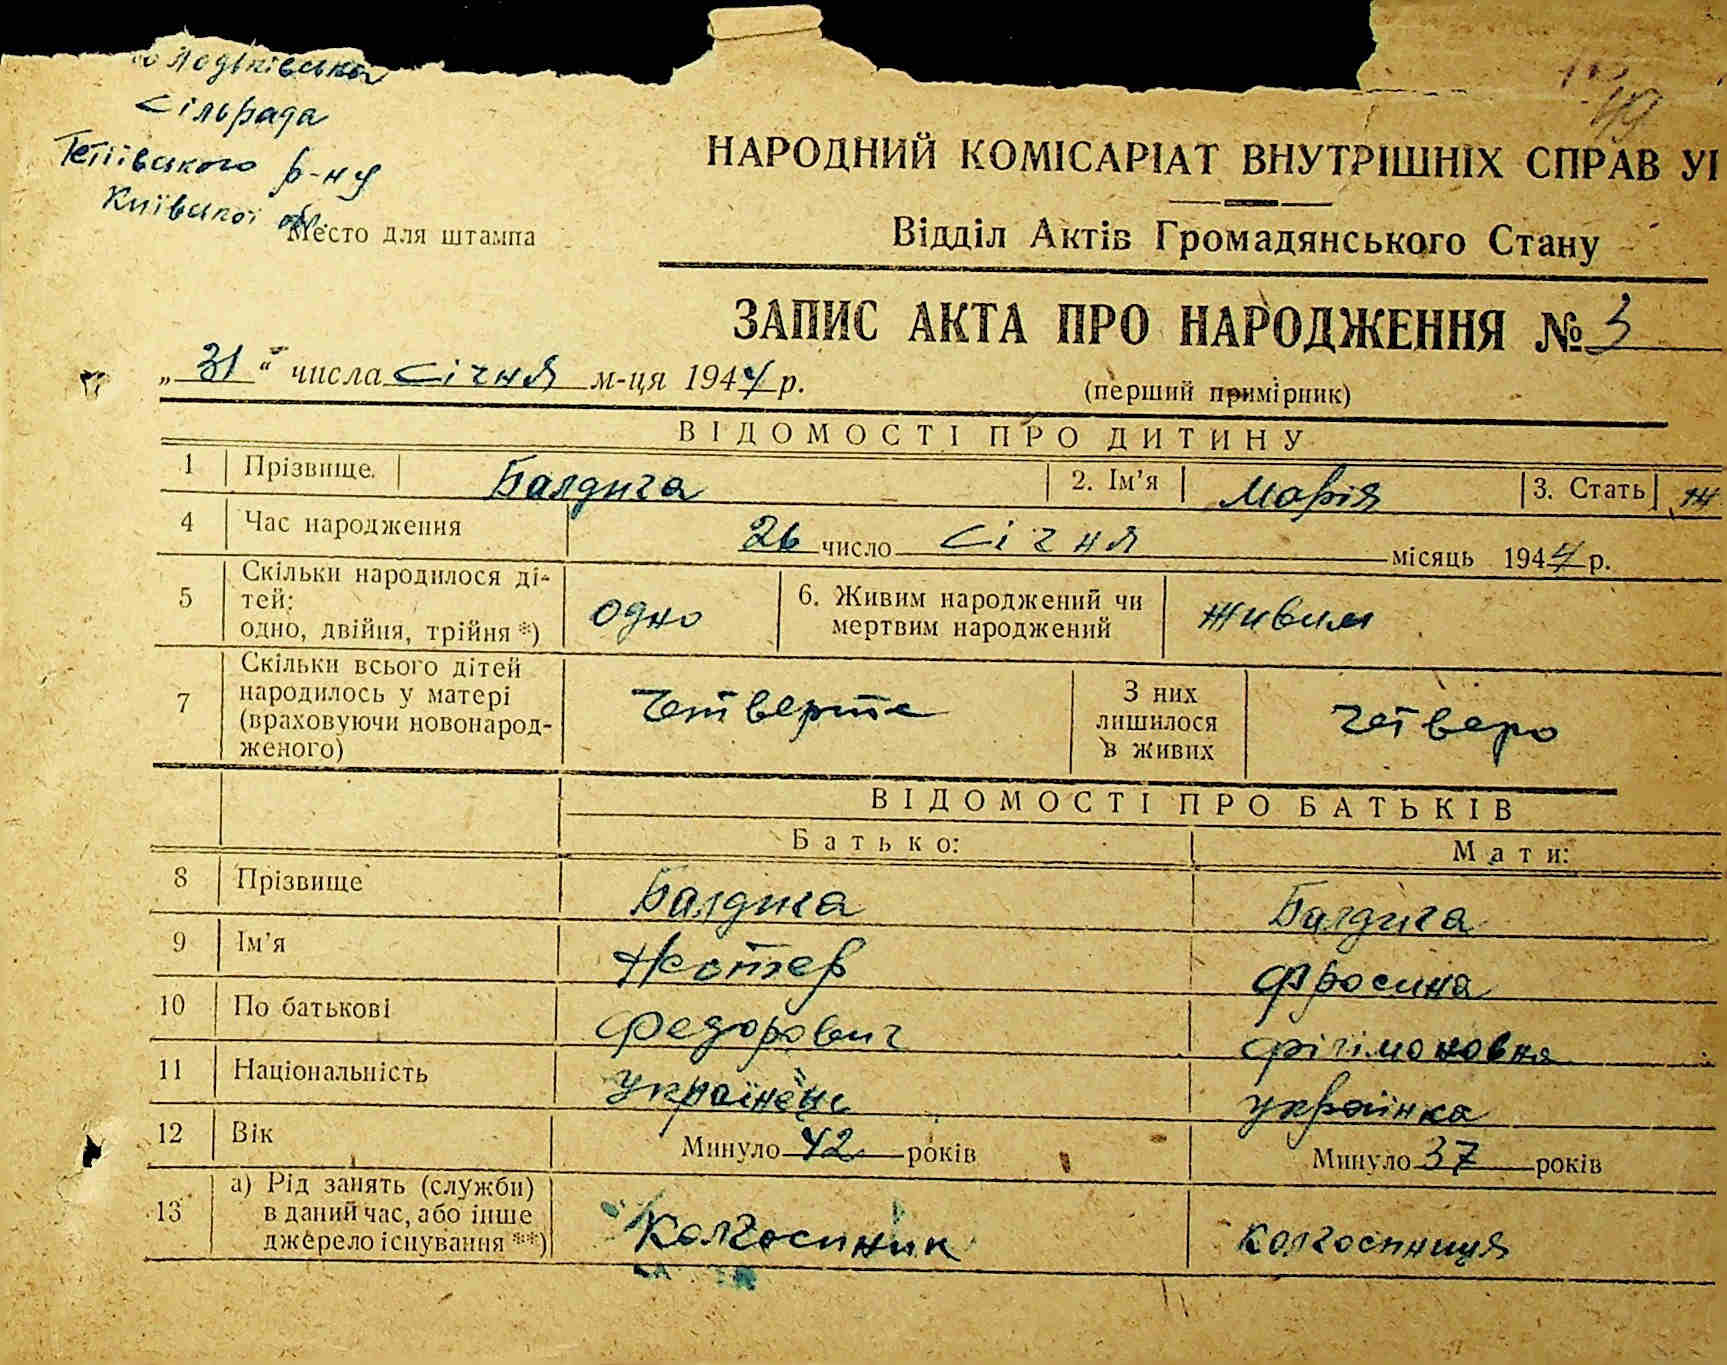 Сільрада
Тетіївського р-ну
Київської обл.
Место для штампа
49
НАРОДНИЙ КОМІСАРІАТ ВНУТРІШНІХ СПРАВ УІ
Відділ Актів Громадянського Стану
ЗАПИС АКТА ПРО НАРОДЖЕННЯ № 3
„31“ числа січня м-ця 1944 р.
(перший примірник)
ВІДОМОСТІ ПРО ДИТИНУ
1 Прізвище. Балдига 2. Ім'я Марія 3. Стать ж
4 Час народження 26 число січня місяць 1944 р.
5 Скільки народилося ді-
тей:
одно, двійня, трійня *) одно 6. Живим народжений чи
мертвим народжений живим
7 Скільки всього дітей
народилось у матері
(враховуючи новонарод-
женого) четверте З них
лишилося
в живих четверо
ВІДОМОСТІ ПРО БАТЬКІВ
Батько: Мати:
8 Прізвище Балдига Балдига
9 Ім'я Фросина
10 По батькові Федорович Філімоновна
11 Національність українец українка
12 Вік Минуло 42 років Минуло 37 років
13 а) Рід занять (служби)
в даний час, або інше
джерело існування **) Колгоспник колгоспниця